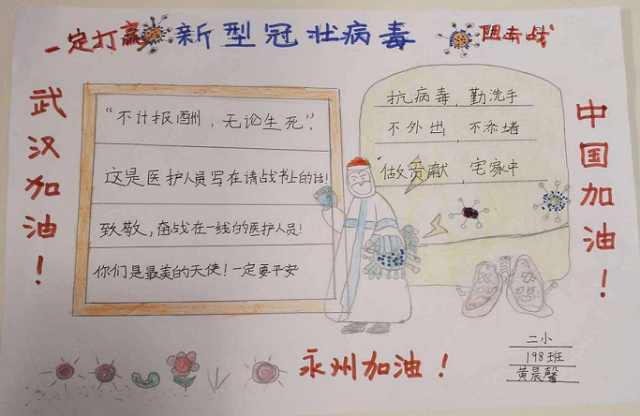 一定打赢新型冠壮病毒阻击战
武汉加油！
“不计报酬，无论生死”，
这是医护人员写在请战书上的话!
致敬，奋战在一线的医护人员!
你们是最美的天使！一定要平安
抗病毒、勤洗手
不外出、不添堵
做贡献、宅家中
中国加油！
永州加油！
二小
198班
黄晨馨